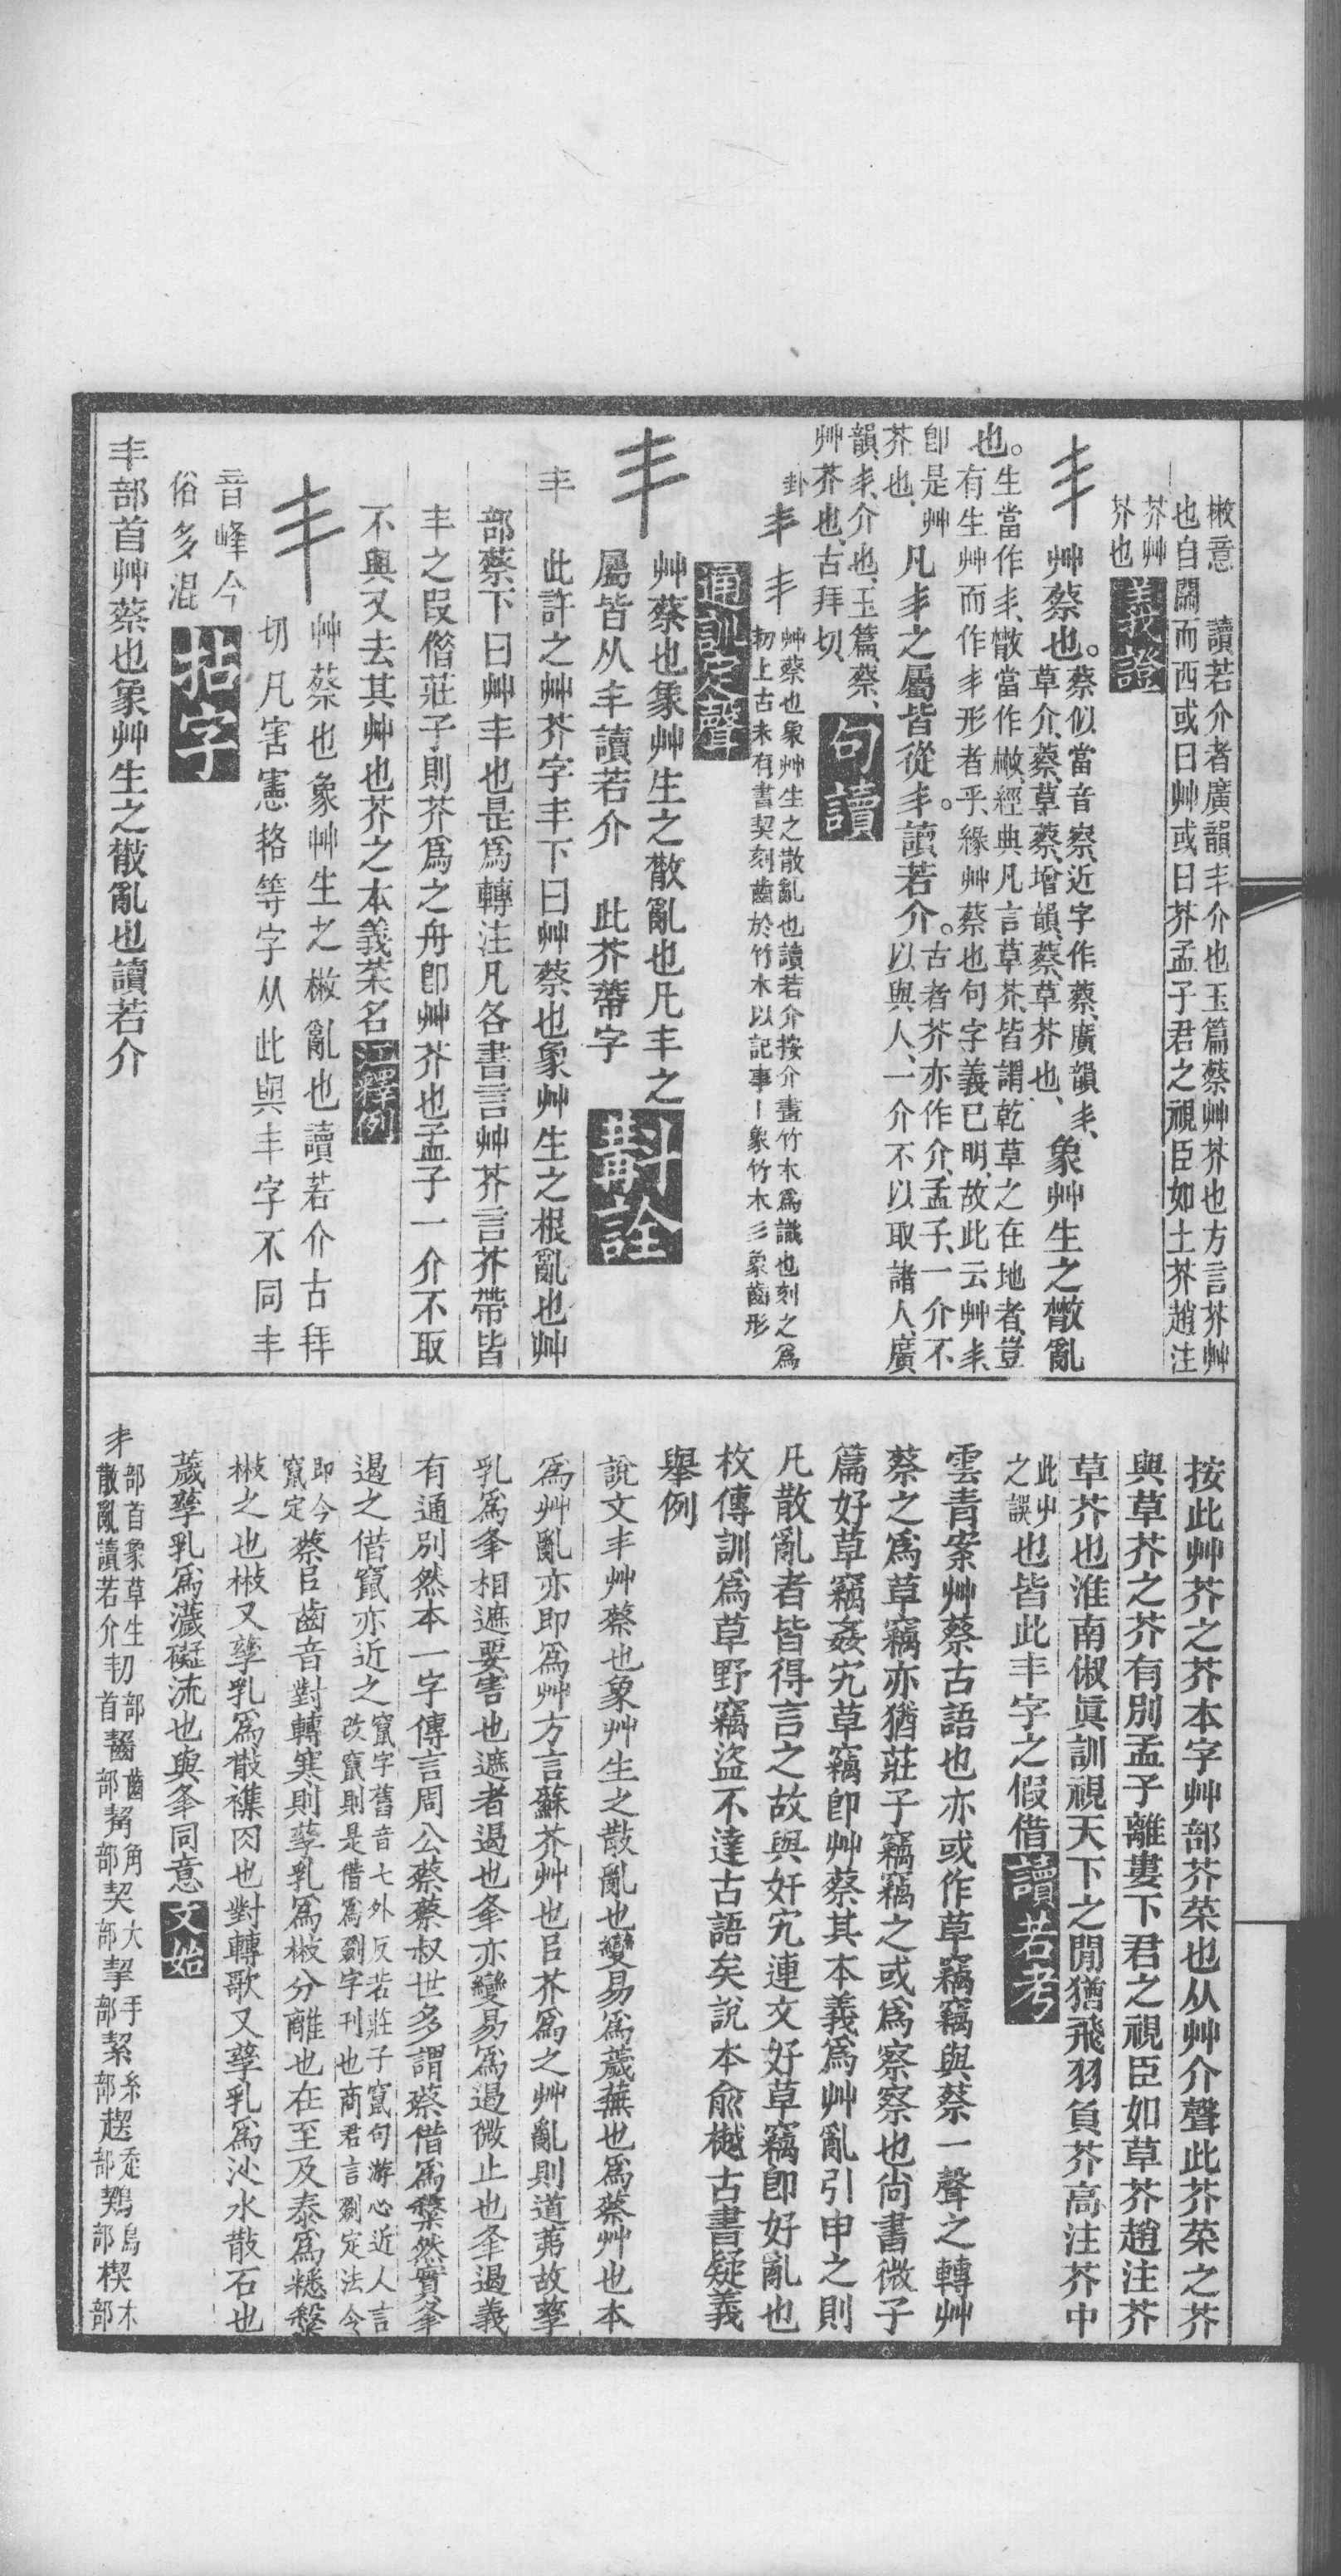 㪔意　讀若介者廣韻丯介也玉篇蔡艸芥也方言芥艸
也自關而西或曰艸或曰芥孟子君之視臣如土芥趙注
芥艸
芥也
義證
丯
艸蔡也。
蔡似當音察、近字作蔡、廣韻丯、
草介、蔡、草蔡、增韻蔡、草芥也、
象艸生之散亂
也。
生當作丯、散當作㪔、經典凡言草芥、皆謂乾草之在地者、豈
有生艸而作丯形者乎、緣艸蔡也句字義已明、故此云艸丯、
即是艸
芥也、
凡丯之屬皆從丯。讀若介。
古者芥亦作介、孟子、一介不
以與人、一介不以取諸人、廣
韻、丯、介也、玉篇、蔡、
艸芥也、古拜切、
句讀
卦
丯
丯
艸蔡也象艸生之散亂也讀若介按介畫竹木爲識也刻之爲
㓞上古未有書契刻齒於竹木以記事丨象竹木彡象齒形
通訓定聲
丯
艸蔡也象艸生之散亂也凡丯之
屬皆从丯讀若介　此芥蔕字
斠詮
丯
此許之艸芥字丯下曰艸蔡也象艸生之根亂也艸
部蔡下曰艸丯也是爲轉注凡各書言艸芥言芥帶皆
丯之叚偺莊子則芥爲之舟卽艸芥也孟子一介不取
不與又去其艸也芥之本義菜名
江釋例
丯
艸蔡也象艸生之㪔亂也讀若介古拜
切凡害憲輅等字从此與丰字不同丰
音峰今
俗多混
拈字
丯部首艸蔡也象艸生之散亂也讀若介
按此艸芥之芥本字艸部芥菜也从艸介聲此芥菜之芥
與草芥之芥有別孟子離婁下君之視臣如草芥趙注芥
草芥也淮南俶眞訓視天下之閒猶飛羽負芥高注芥中
此屮
之誤
也皆此丯字之假借
讀若考
雲青案艸蔡古語也亦或作草竊竊與蔡一聲之轉艸
蔡之爲草竊亦猶莊子竊竊之或爲察察也尙書微子
篇好草竊姦宄草竊卽艸蔡其本義爲艸亂引申之則
凡散亂者皆得言之故與奸宄連文好草竊卽好亂也
枚傳訓爲草野竊盜不達古語矣說本俞樾古書疑義
舉例
說文丯艸蔡也象艸生之散亂也變易爲薉蕪也爲蔡艸也本
爲艸亂亦即爲艸方言蘇芥艸也㠯芥爲之艸亂則道茀故孳
乳爲夆相遮要害也遮者遏也夆亦變易爲遏微止也夆遏義
有通別然本一字傳言周公蔡蔡叔世多謂蔡借爲㯟然實夆
遏之借竄亦近之
竄字舊音七外反若莊子竄句游心近人言
改竄則是借爲劀字刊也商君言劀定法令
即今
竄定
蔡㠯齒音對轉寒則孳乳爲㪔分離也在至及泰爲䊝䊛
㪔之也㪔又孳乳爲散襍肉也對轉歌又孳乳爲沙水散石也
薉孳乳爲濊礙流也與夆同意
文始
丯
部首象草生
散亂讀若介
㓞
部
首
齧
齒
部
觢
角
部
契
大
部
挈
手
部
絜
糸
部
趩
走
部
鶛
鳥
部
楔
木
部